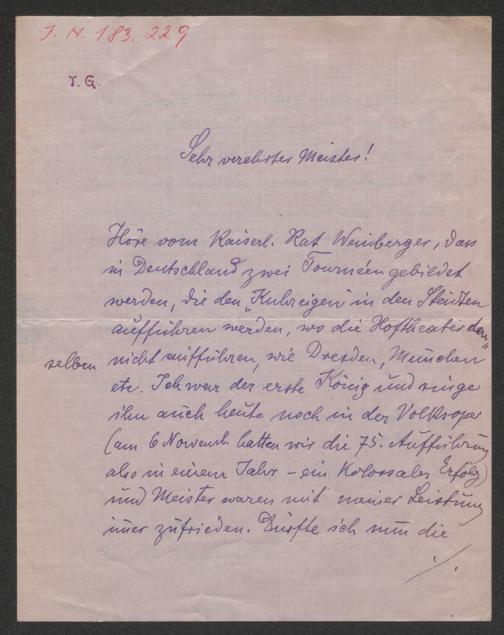 J. N. 183.229
r. G.
Sehr verehrtes Meister!
Höre vom Kaiserl. Rat Weinberger, dass
in Deutschland zwei Tournéen gebildet
werden, die den „Kuhreigen" in den Städten
aufführen werden, wo die Hoftheater den
selben nicht aufführen, wie Dresden, München
etc. Ich war der erste König und singe
ihn auch heute noch in der Volksoper
(am 6 Novemb. hatten wir die 75. Aufführung
also in einem Jahr – ein kolossaler Erfolg)
und Meister waren mit meiner Leistung
imer zufrieden. Dürfte ich nun die
./.